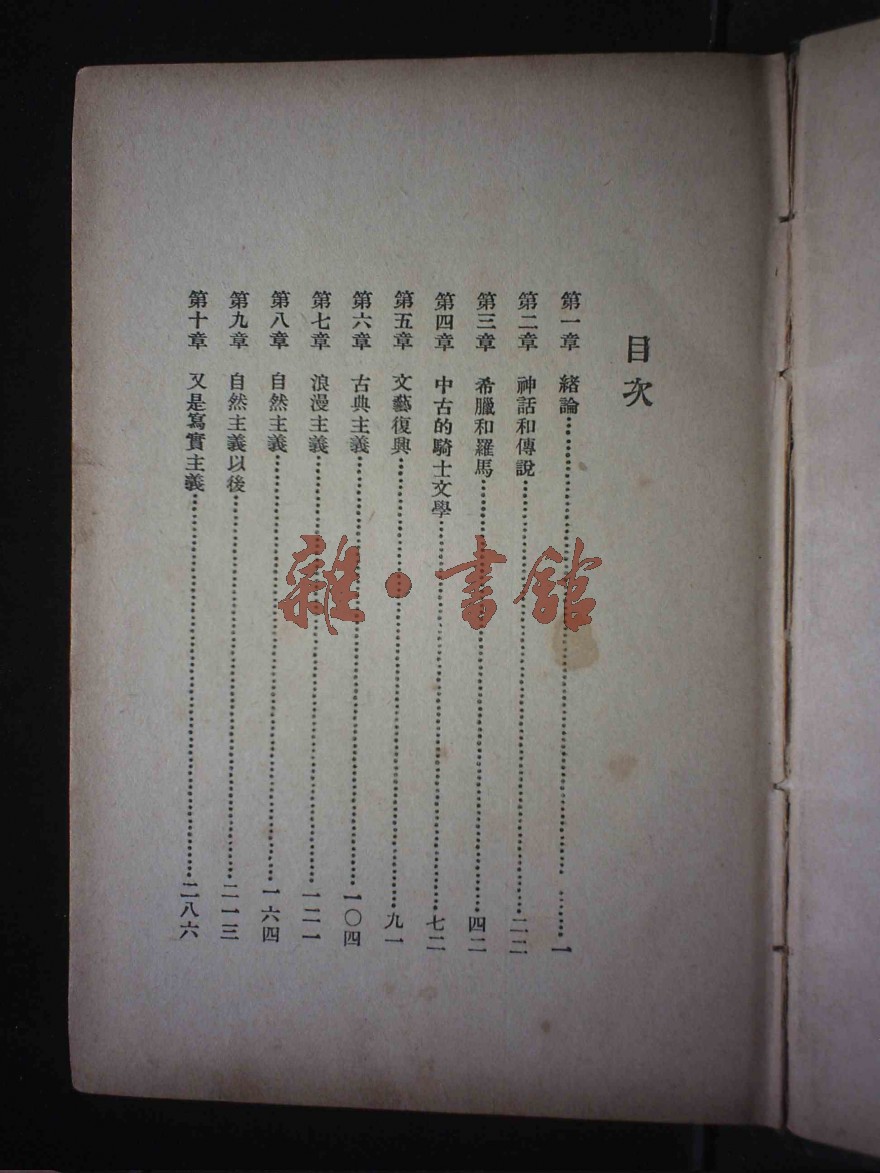 目次
第一章 緒論……………………一
第二章 神話和傳說……………………二二
第三章 希臘和羅馬……………………四二
第四章 中古的騎士文學……………………七二
第五章 文藝復興……………………九一
第六章 古典主義……………………一〇四
第七章 浪漫主義……………………一二一
第八章 自然主義……………………一六四
第九章 自然主義以後……………………二一三
第十章 又是寫實主義……………………二八六
雜·書館